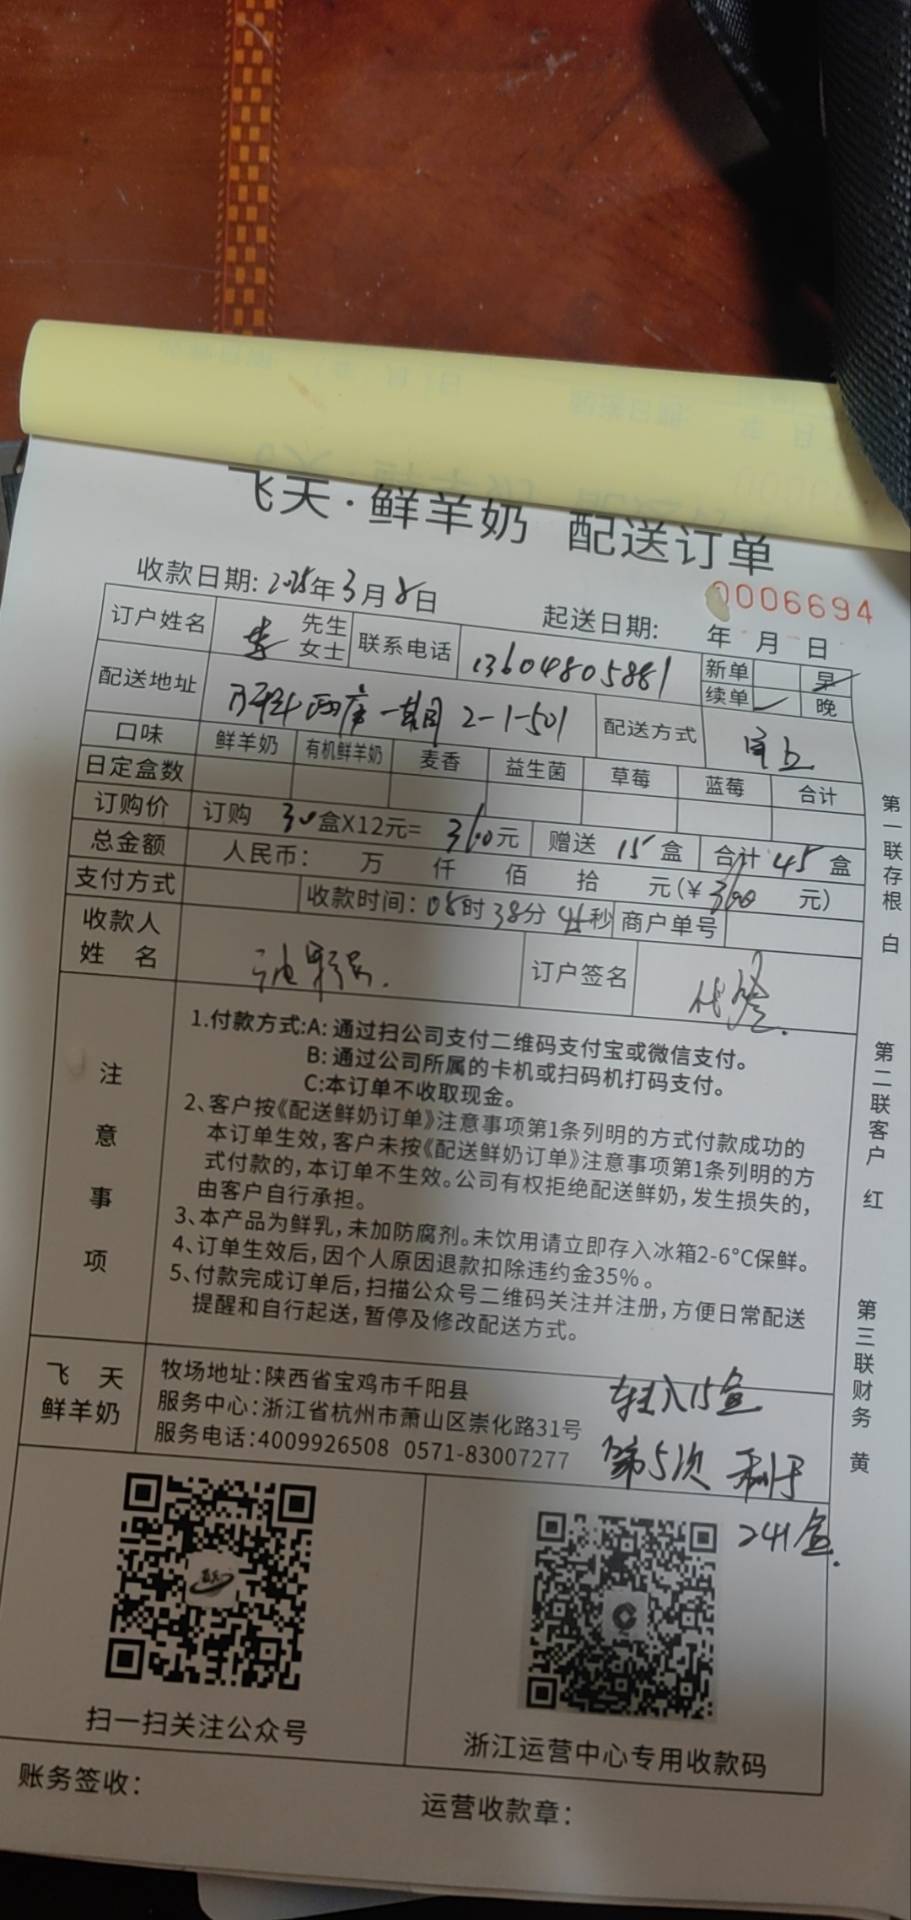 飞天·鲜羊奶 配送订单
0006694
收款日期: 2025年3月8日 起送日期: 年 月 日
订户姓名 李 先生 女士 联系电话 13604805881 新单 早
续单 晚
配送地址 一期 2-1-501 配送方式
口味 鲜羊奶 有机鲜羊奶 麦香 益生菌 草莓 蓝莓 合计
日定盒数
订购价 订购 30盒X12元= 360元 赠送 15盒 合计 45盒
总金额 人民币: 万 仟 佰 拾 元(¥ 360 元)
支付方式 收款时间: 08时38分44秒 商户单号
收款人
姓 名 订户签名 代签
注意事项
1.付款方式:A: 通过扫公司支付二维码支付宝或微信支付。
B: 通过公司所属的卡机或扫码机打码支付。
C:本订单不收取现金。
2、客户按《配送鲜奶订单》注意事项第1条列明的方式付款成功的
本订单生效,客户未按《配送鲜奶订单》注意事项第1条列明的方
式付款的,本订单不生效。公司有权拒绝配送鲜奶,发生损失的,
由客户自行承担。
3、本产品为鲜乳,未加防腐剂。未饮用请立即存入冰箱2-6°C保鲜。
4、订单生效后,因个人原因退款扣除违约金35%。
5、付款完成订单后,扫描公众号二维码关注并注册,方便日常配送
提醒和自行起送,暂停及修改配送方式。
飞 天
鲜羊奶
牧场地址:陕西省宝鸡市千阳县
服务中心:浙江省杭州市萧山区崇化路31号
服务电话:4009926508 0571-83007277
转入15盒
第5次 剩于
241盒.
扫一扫关注公众号
浙江运营中心专用收款码
账务签收:
运营收款章:
第一联存根 白
第二联客户 红
第三联财务 黄